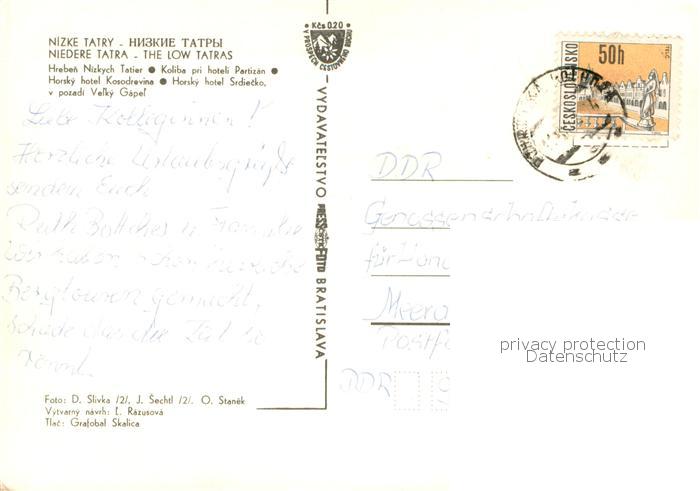 NÍZKE TATRY - НИЗКИЕ ТАТРЫ
NIEDERE TATRA - THE LOW TATRAS
Hrebeň Nízkych Tatier ● Koliba pri hoteli Partizán ●
Horský hotel Kosodrevina ● Horský hotel Srdiečko,
v pozadí Veľký Gápeľ
Liebe Kolleginnen!
Herzliche Urlaubsgrüße
senden Euch
Ruth u. Familie
Wir haben schon
Bergtouren gemacht,
schade das die Zeit so
rennt.
Foto: D. Slivka /2/, J. Šechtl /2/. O. Staněk
Výtvarný návrh: Ľ. Rázusová
Tlač: Grafobal Skalica
Kčs 0,20
VYDAVATEĽSTVO PRESSFOTO BRATISLAVA
50h
TELČ
ČESKOSLOVENSKO
DDR
Genossenschaftskasse
für Han
Meera
Postf
DDR
privacy protection
Datenschutz